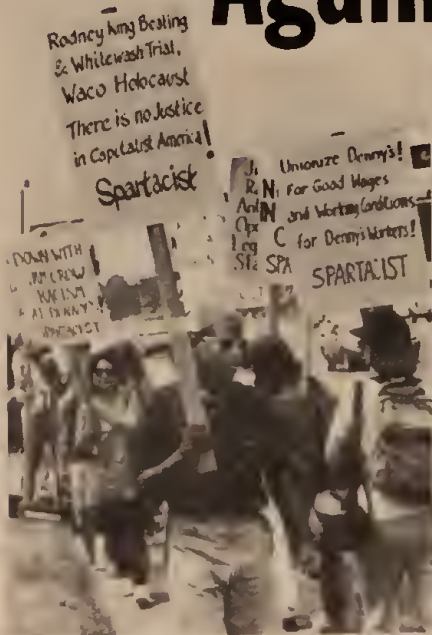 Again
Rodney King Beating
& Whitewash Trial,
Waco Holocaust
There is no Justice
in Capitalist America!
Spartacist
Unionize Denny's!
For Good Wages
and Working Conditions
for Denny's Workers!
SPARTACIST
DOWN WITH
JIM CROW
RACISM
AT DENNY'S
SPARTACIST